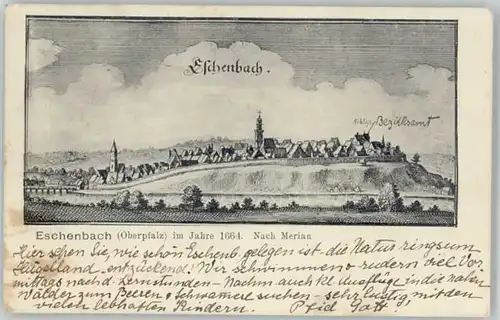 Eschenbach.
Bezirksamt
Eschenbach (Oberpfalz) im Jahre 1664. Nach Merian
Hier sehen Sie, wie schön Eschenb. gelegen ist - die Natur ringsum
Hügelland, entzückend! Wir schwimmen u. rudern viel Vor-
mittags nach d. Lernstunden - Nachm. auch Ausflüge in die nahen
Wälder zum Beeren u. Schwämme suchen - sehr lustig mit den
vielen lebhaften Kindern. Gott!